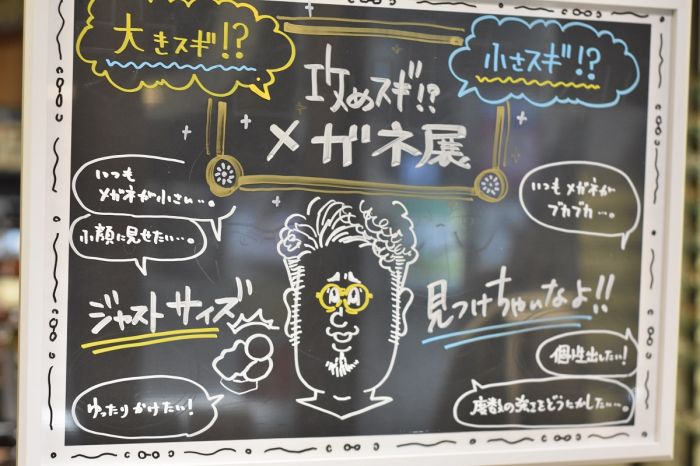 大きスギ!?
小さスギ!?
攻めスギ!?
メガネ展
いつも
メガネが小さい…。
小顔に見せたい…。
いつもメガネが
ブカブカ…。
ジャストサイズ
見つけちゃいなよ!!
ゆったりかけたい!
個性出したい!
度数の強さをどうにかしたい…。